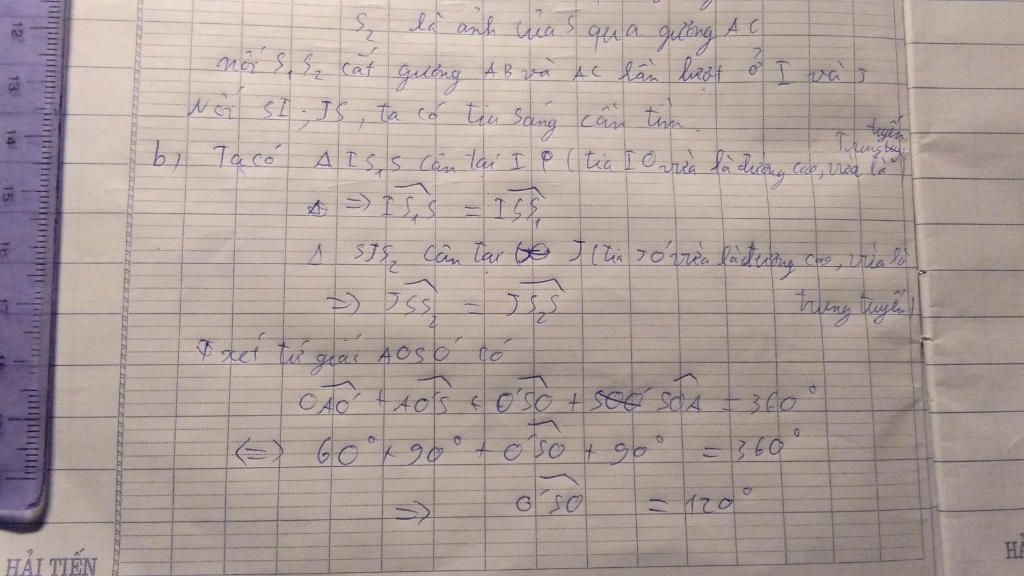 S₂ là ảnh của S qua gương AC
nối S₁S₂ cắt gương AB và AC lần lượt ở I và J
Nối SI; JS, ta có tia sáng cần tìm.
b) Ta có Δ IS₁S cân tại I (tia IO vừa là đường cao, vừa là trung tuyến)
=> IS₁S = ISS₁
Δ SJS₂ cân tại J (tia JO' vừa là đường cao, vừa là trung tuyến)
=> JSS₂ = JS₂S
xét tứ giác AOSO' có
OAO' + AO'S + O'SO + SOA = 360°
<=> 60° + 90° + O'SO + 90° = 360°
=> O'SO = 120°
12
13
14
15
17
HẢI TIẾN